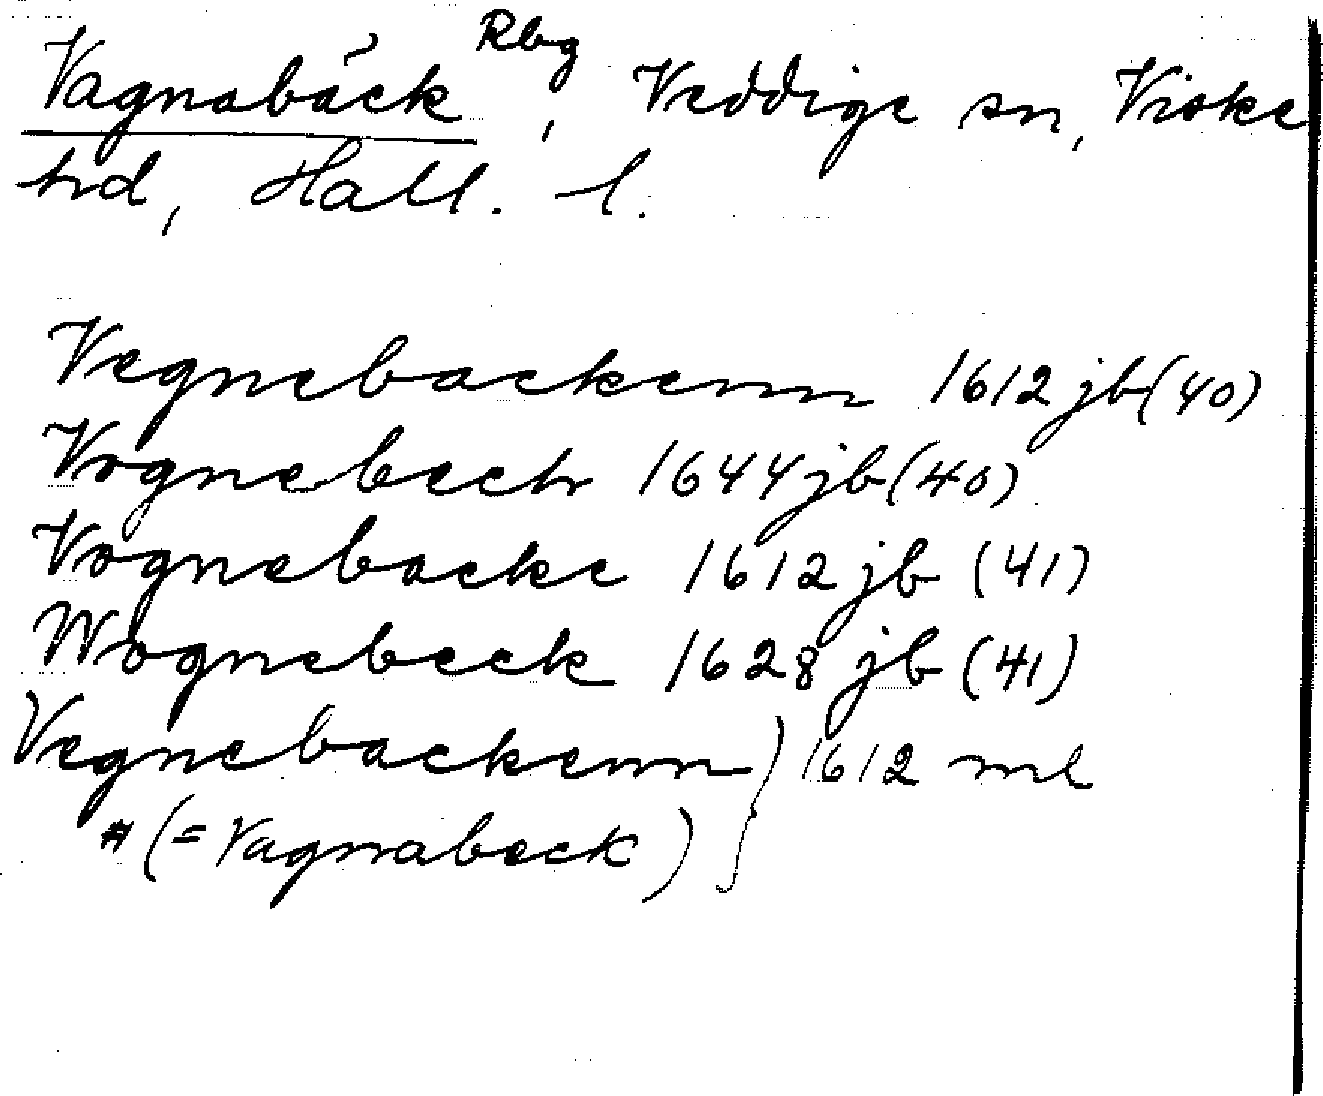 Vagnabäck Rbg, Veddige sn, Viske
hd, Hall. l.
Vegnebackenn 1612 jb (40)
Vognebech 1644 jb (40)
Vognebacke 1612 jb (41)
Wognebeck 1628 jb (41)
Vegnebackenn } 1612 ml
(= Vagnabeck)